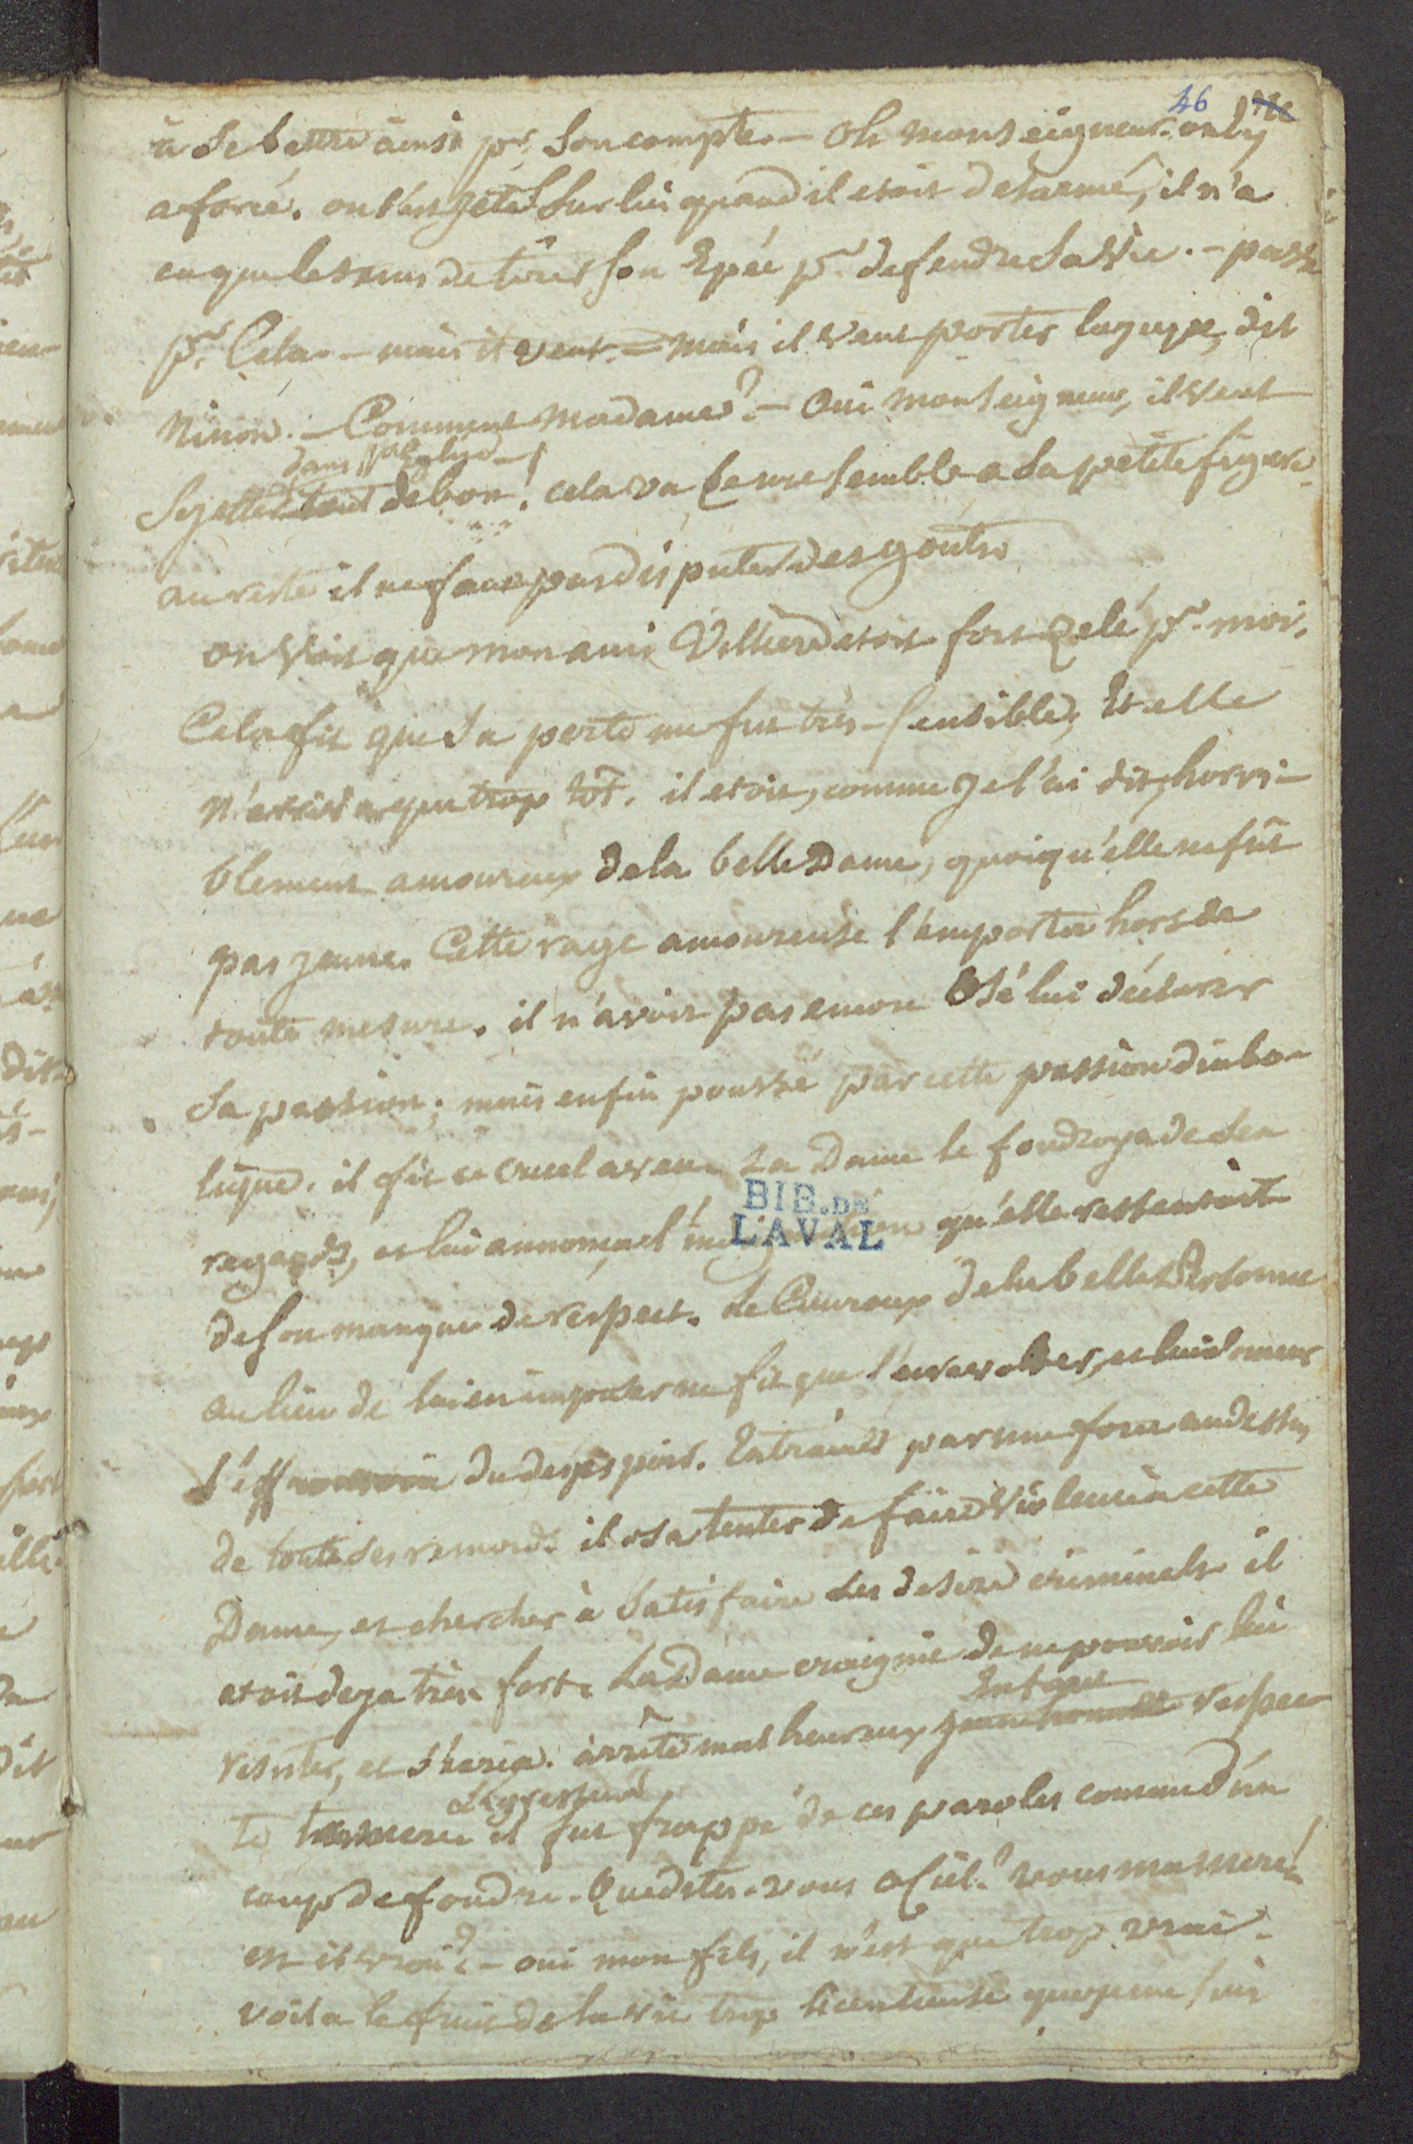 46
à se battre ainsi pr. son compte. — Oh monseigneur. on l'y
a forcé. on s'est jetté sur lui quand il etoit desarmé, il n'a
eu que le tems de tirer son Epée pr. defendre sa vie. — passe
pr. Cela. — mais il veut. — mais il veut porter la guipe, dit
Ninon. — Comment Madame? — Oui Monseigneur, il veut
dans l'Eglise —
se jetter tout de bon! cela va ce me semble a sa petite figure.
au reste il ne faut pas disputer des goûts.
on voit que mon ami Villiers etoit fort zelé pr. moi.
Cela fit que sa perte me fut très-sensible, Et elle
n'arriva que trop tôt. il etoit, comme je l'ai dit, horri-
blement amoureux de la belle Dame, quoiqu'elle ne fût
pas jeune. Cette rage amoureuse l'emporta hors de
toute mesure. il n'avoit pas encore osé lui déclarer
sa passion; mais enfin poussé par cette passion diabo-
lique. il fit ce cruel aveu. La Dame le foudroya de ses
regards, et lui annonça l'indignation qu'elle ressentoit
BIB. DE
LAVAL
de son manque de respect. Le Couroux de la belle Personne
au lieu de lui en imposer ne fit que l'
et lui donner
l'eff du desespoir. Entrainé par une force au dessus
de tous ses remords. il osa tenter de faire violence à cette
Dame, et chercher à satisfaire ses desirs criminels. il
etoit deja très fort. La Dame craignit de ne pouvoir lui
Enfant
resister, et s'ecria. arrête malheureux jeune homme respec
te ta mere il fut frappé de ces paroles comme d'un
coup de foudre. Que dites-vous o Ciel? vous ma mere!
est il vrai? — oui mon fils, il n'est que trop vrai.
voila le fruit de la vie trop licentieuse que j'eme suis